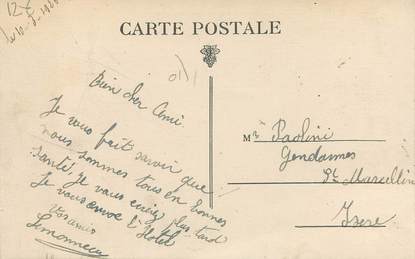 CARTE POSTALE
Bien cher Ami
Je vous fait savoir que
nous sommes tous en bonnes
santé je vous écrirez plus tard
Je vous envoe l'Hotel
Vos amis
Lemonnier
Mr Paolini
Gendarmes
St Marcellin
Isere